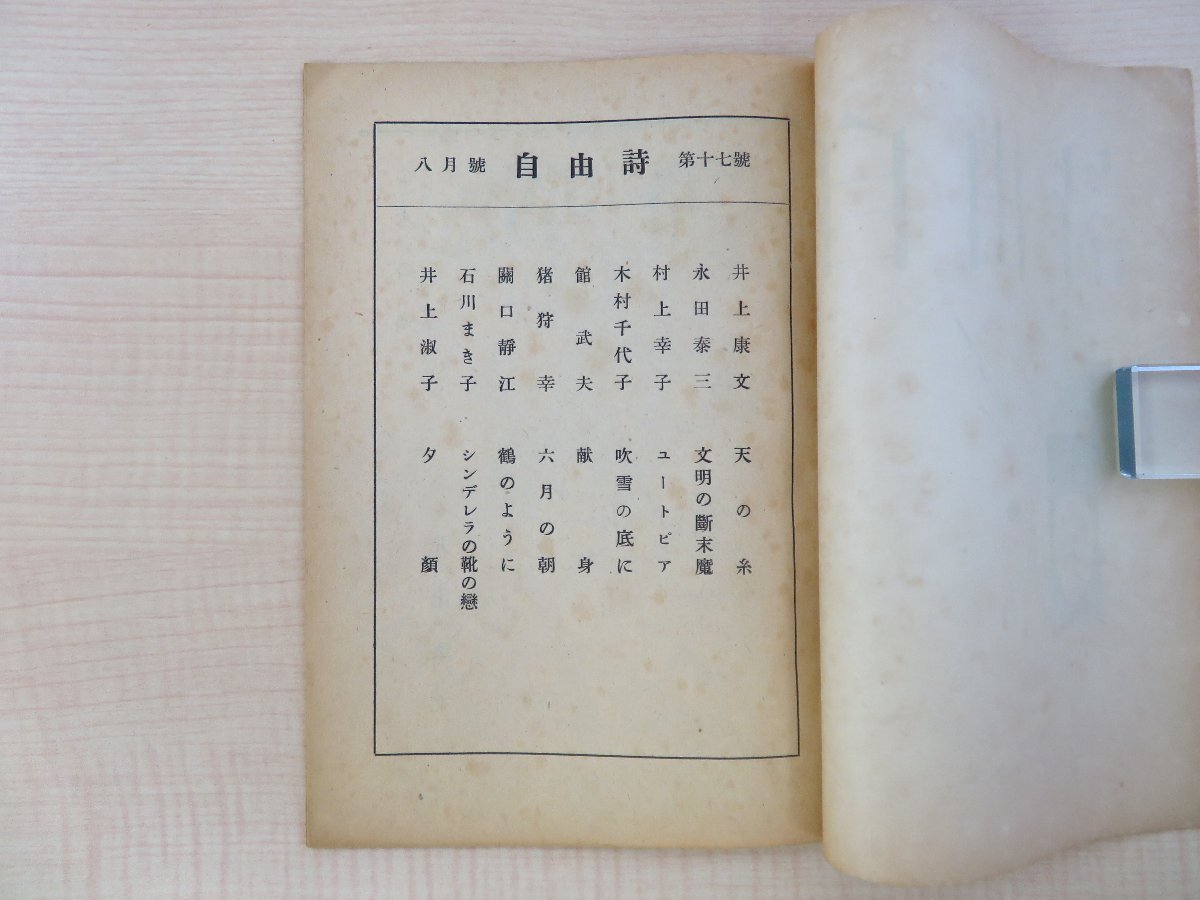 八月號 自由詩 第十七號
井上康文 天の糸
永田泰三 文明の斷末魔
村上幸子 ユートピア
木村千代子 吹雪の底に
館武夫 献身
猪狩幸 六月の朝
關口靜江 鶴のように
石川まき子 シンデレラの靴の戀
井上淑子 夕顏